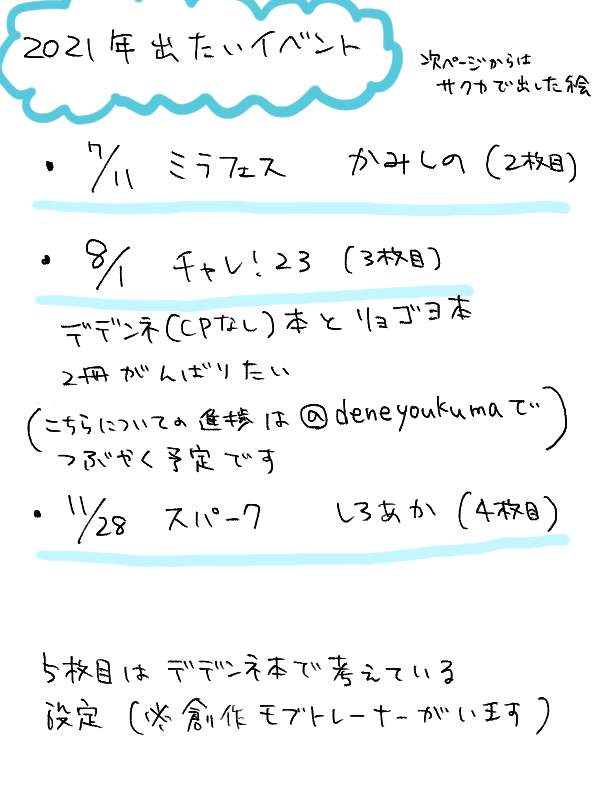 2021年出たいイベント
次ページからは
サクカで出した絵
・ 7/11 ミラフェス かみしの (2枚目)
・ 8/1 チャレ!23 (3枚目)
デデンネ(CPなし)本とリョゴヨ本
2冊がんばりたい
(こちらについての進捗は@deneyoukumaで
つぶやく予定です)
・ 11/28 スパーク しろあか (4枚目)
5枚目はデデンネ本で考えている
設定 (※創作モブトレーナーがいます)